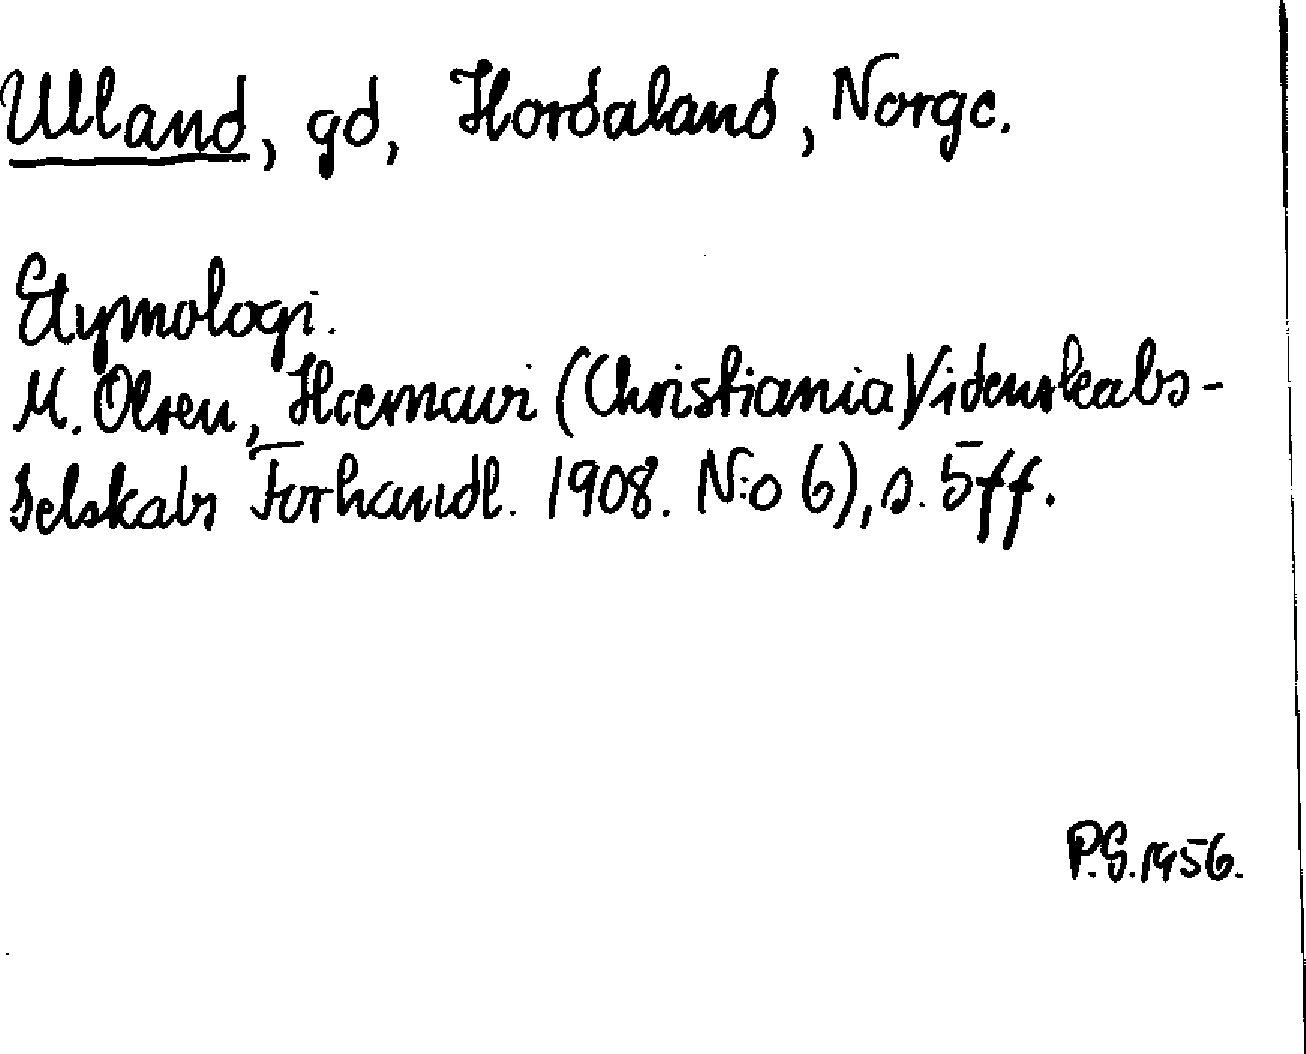 Ulland, gd, Hordaland, Norge.
Etymologi.
M. Olsen, Hærnavi (Christiania Videnskabs-
Selskabs Forhandl. 1908. N:o 6), s. 5ff.
P.S. 1956.